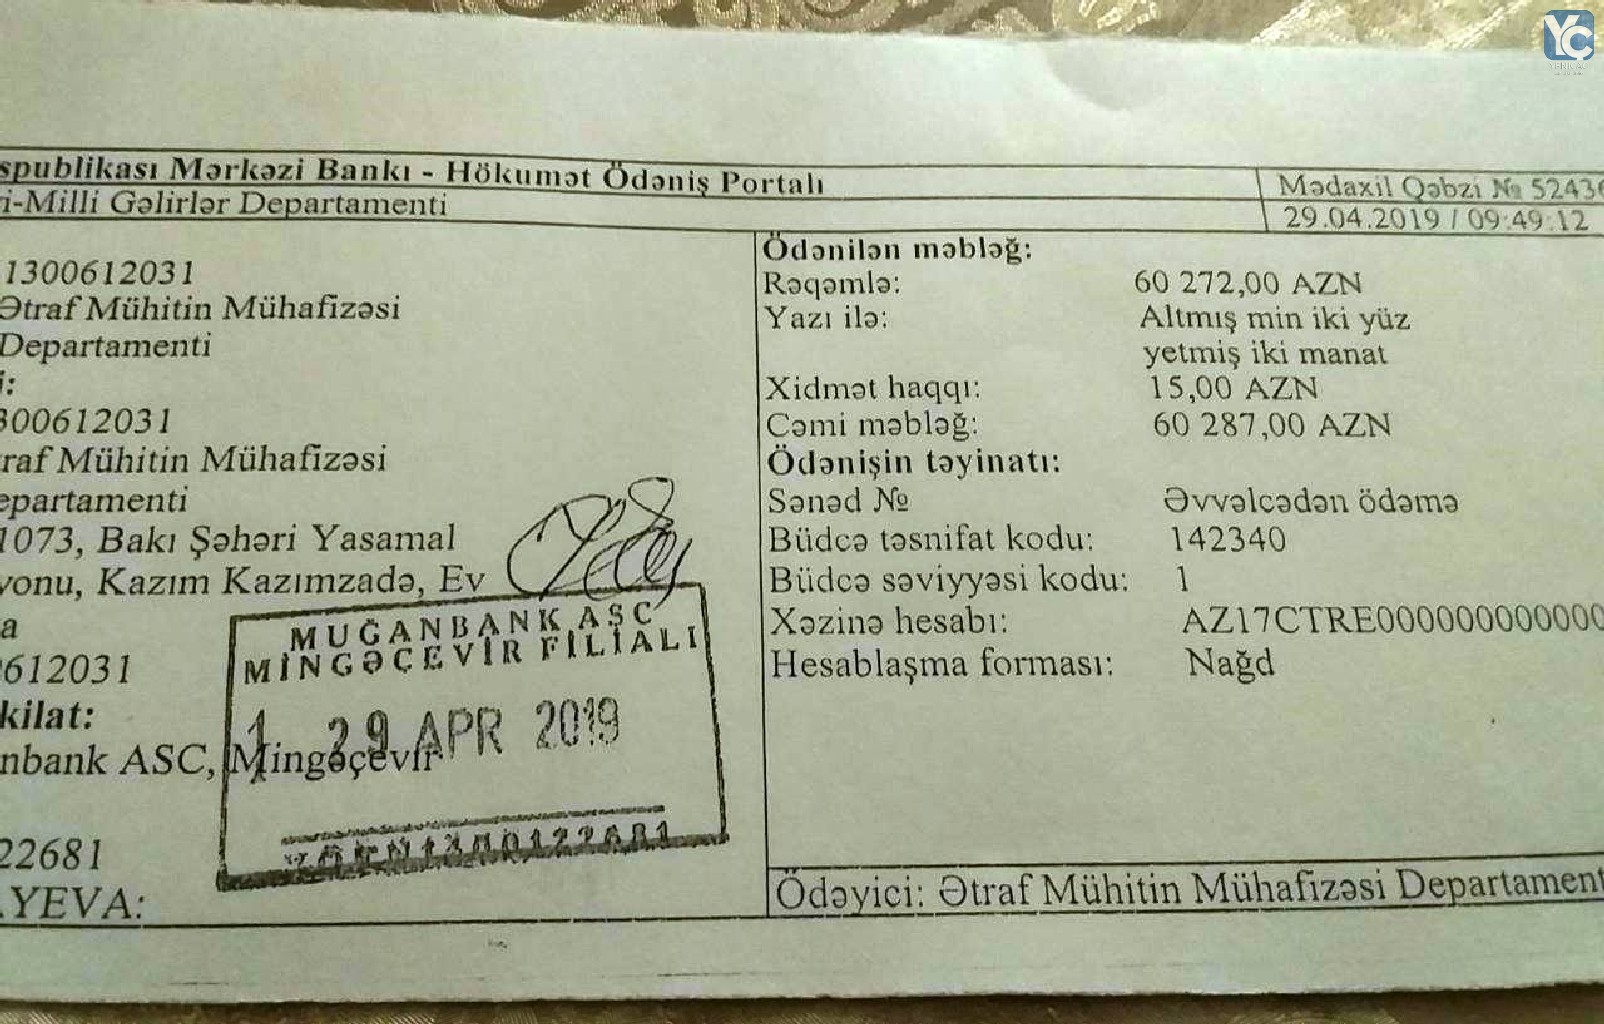 spublikası Mərkəzi Bankı - Hökumət Ödəniş Portalı
i-Milli Gəlirlər Departamenti
Mədaxil Qəbzi № 52436
29.04.2019 / 09:49:12
1300612031
Ətraf Mühitin Mühafizəsi
Departamenti
i:
300612031
raf Mühitin Mühafizəsi
epartamenti
1073, Bakı Şəhəri Yasamal
yonu, Kazım Kazımzadə, Ev
a
612031
kilat:
nbank ASC, Mingəçevir
22681
.YEVA:
MUĞANBANK ASC
MİNGƏÇEVİR FİLİALI
1 29 APR 2019
VÖEN1300122681
Ödənilən məbləğ:
Rəqəmlə: 60 272,00 AZN
Yazı ilə: Altmış min iki yüz
yetmiş iki manat
Xidmət haqqı: 15,00 AZN
Cəmi məbləğ: 60 287,00 AZN
Ödənişin təyinatı:
Sənəd № Əvvəlcədən ödəmə
Büdcə təsnifat kodu: 142340
Büdcə səviyyəsi kodu: 1
Xəzinə hesabı: AZ17CTRE000000000000
Hesablaşma forması: Nağd
Ödəyici: Ətraf Mühitin Mühafizəsi Departament
YÇ